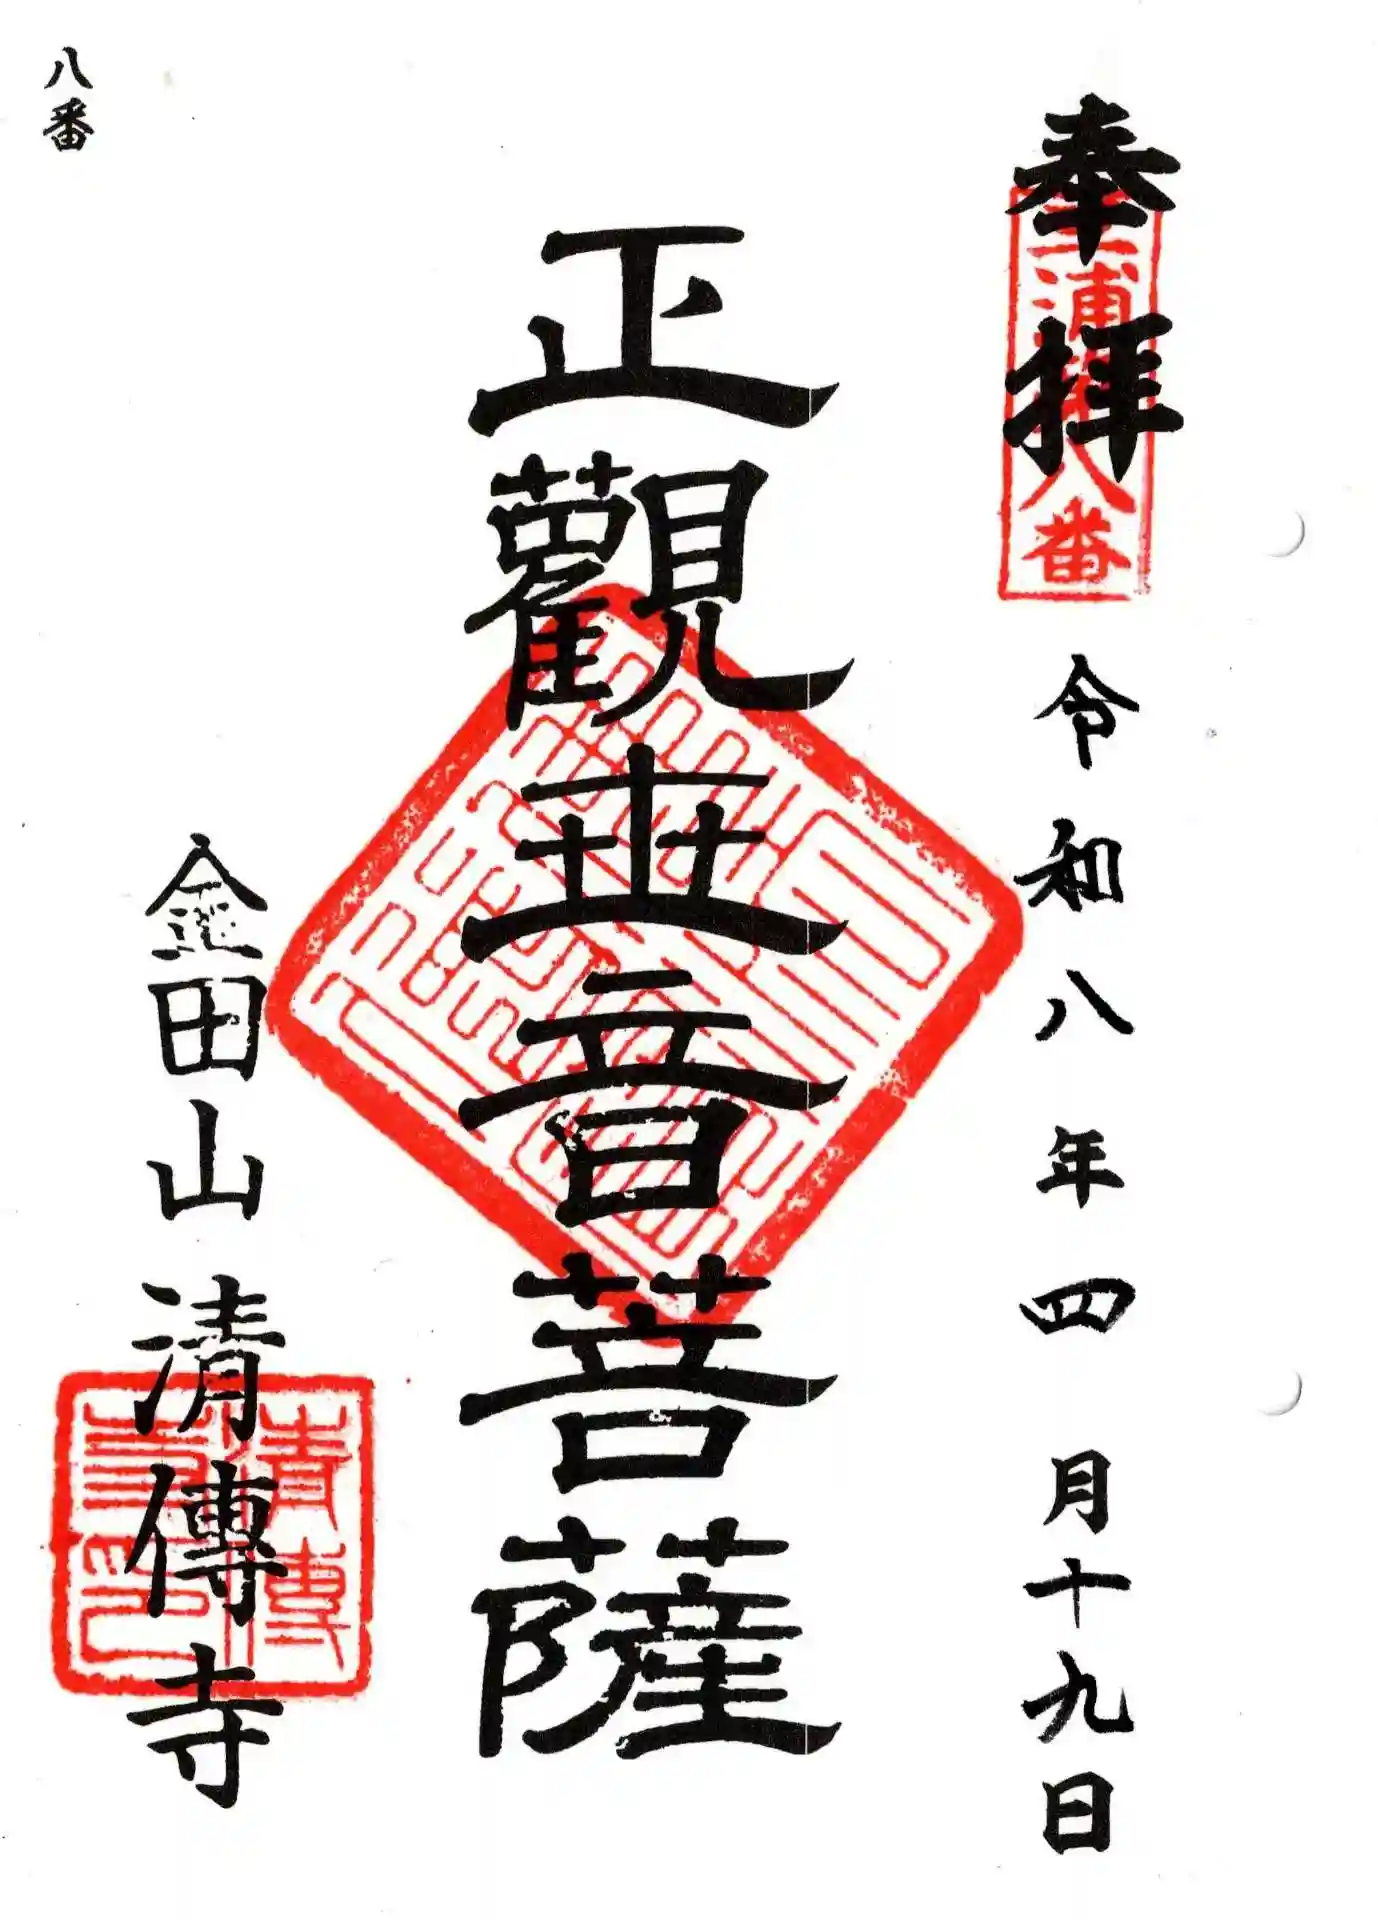 奉拝
三浦
八番
令和八年四月十九日
正觀世音菩薩
金田山清傳寺
清傳
寺印
八番